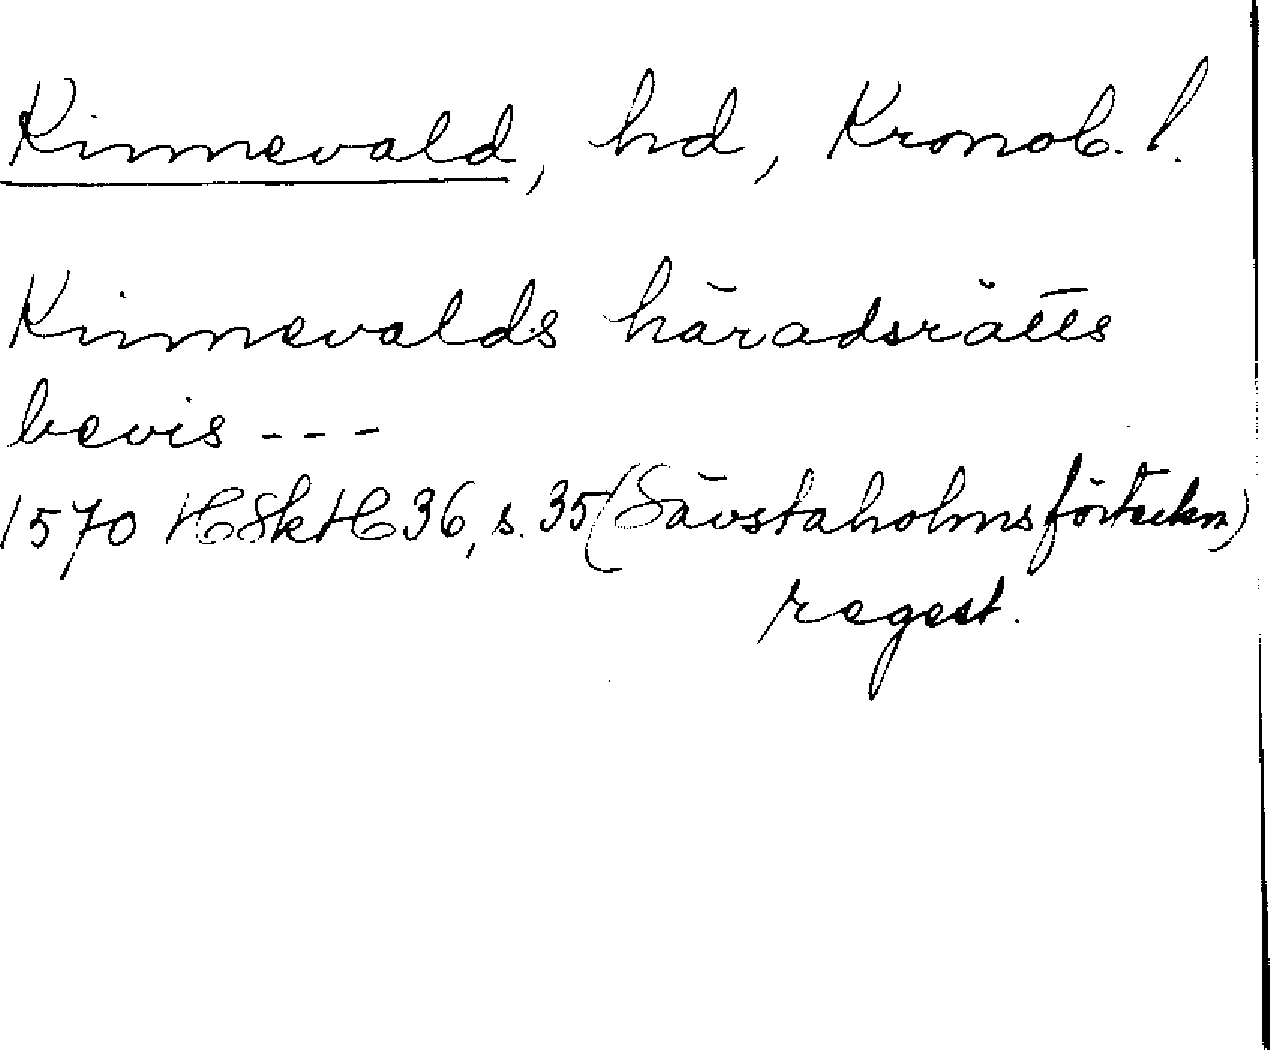 Kinnevald, hd, Kronob. l.
Kinnevalds häradsrätts
bevis - - -
1570 HSkH 36, s. 35 (Sävstaholms förteckn)
regest.